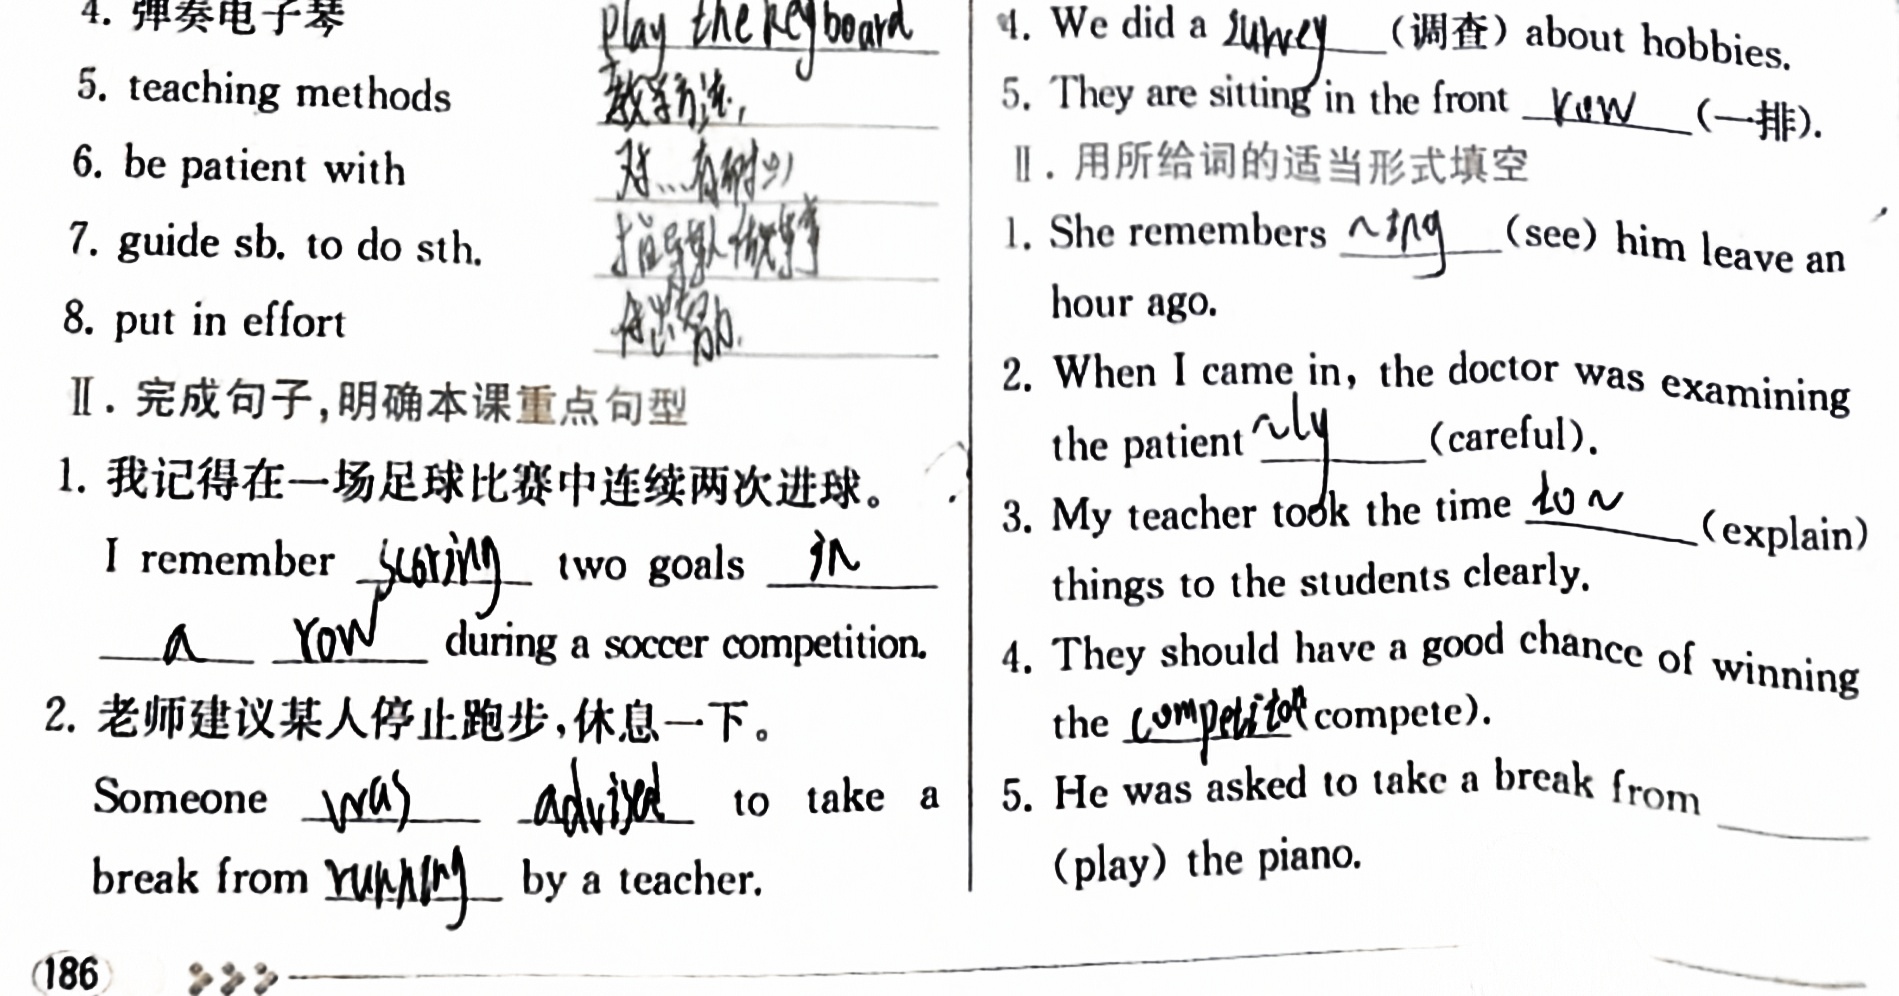 4. 弹奏电子琴 play the keyboard
5. teaching methods 教学方法,
6. be patient with 对...有耐心
7. guide sb. to do sth. 指导某人做某事
8. put in effort 付出努力.
Ⅱ. 完成句子,明确本课重点句型
1. 我记得在一场足球比赛中连续两次进球。
I remember scoring two goals in
a row during a soccer competition.
2. 老师建议某人停止跑步,休息一下。
Someone was advised to take a
break from running by a teacher.
186
4. We did a survey (调查) about hobbies.
5. They are sitting in the front row (一排).
Ⅱ. 用所给词的适当形式填空
1. She remembers ~ing (see) him leave an
hour ago.
2. When I came in, the doctor was examining
the patient ~ly (careful).
3. My teacher took the time to ~ (explain)
things to the students clearly.
4. They should have a good chance of winning
the (compete).
5. He was asked to take a break from
(play) the piano.